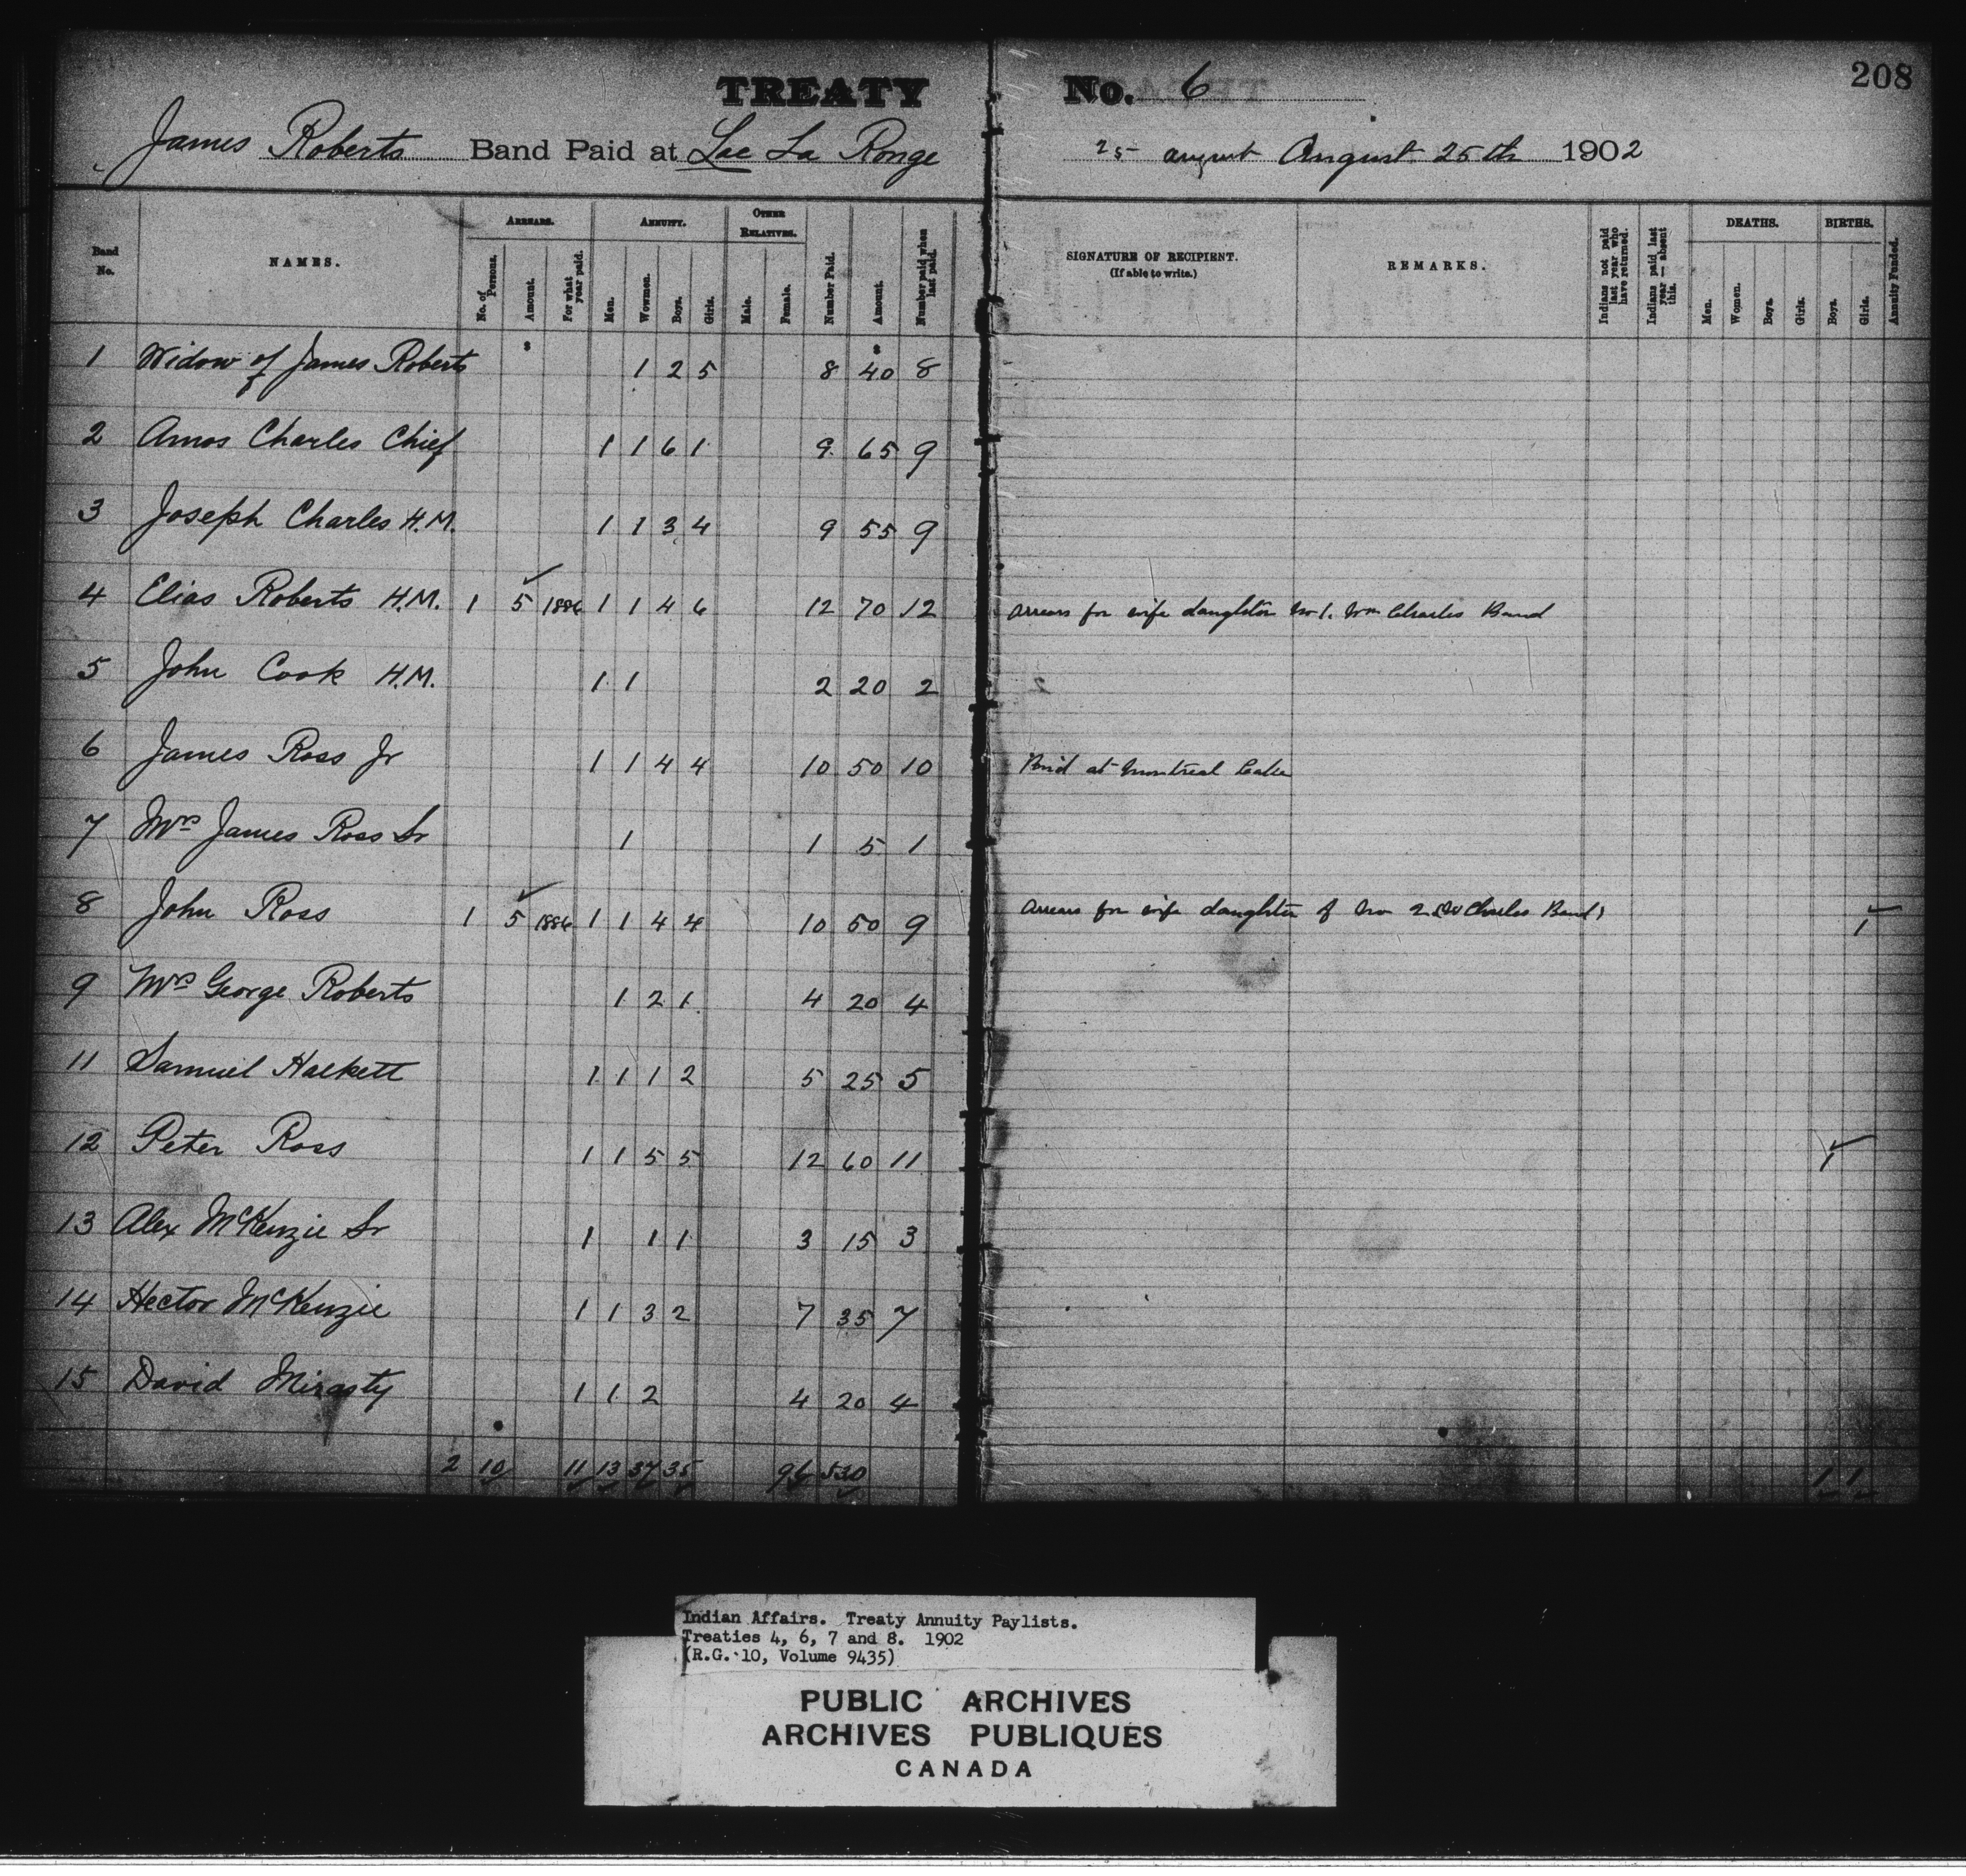 TREATY No. 6
208
James Roberts Band Paid at Lac La Ronge
25 august August 25th 1902
Band No.
NAMES.
ARREARS.
No. of Persons.
Amount.
For what year paid.
ANNUITY.
Men.
Wowmen.
Boys.
Girls.
OTHER RELATIVES.
Male.
Female.
Number Paid.
Amount.
Number paid when last paid.
SIGNATURE OF RECIPIENT.
(If able to write.)
REMARKS.
Indians not paid last year who have returned.
Indians paid last year — absent this.
DEATHS.
Men.
Women.
Boys.
Girls.
BIRTHS.
Boys.
Girls.
Annuity Funded.
$ $
1 Widow of James Roberts 1 2 5 8 40 8
2 Amos Charles Chief 1 1 6 1 9 65 9
3 Joseph Charles H.M. 1 1 3 4 9 55 9
4 Elias Roberts H.M. 1 5 1886 1 1 4 6 12 70 12 arrears for wife daughter No 1. Wm Charles Band
5 John Cook H.M. 1 1 2 20 2
6 James Ross Jr 1 1 4 4 10 50 10 Paid at Montreal Lake
7 Mrs James Ross Sr 1 1 5 1
8 John Ross 1 5 1886 1 1 4 4 10 50 9 Arrears for wife daughter of No 2 Charles Band 1
9 Mrs George Roberts 1 2 1 4 20 4
11 Samuel Halkett 1 1 1 2 5 25 5
12 Peter Ross 1 1 5 5 12 60 11 1
13 Alex McKenzie Sr 1 1 1 3 15 3
14 Hector McKenzie 1 1 3 2 7 35 7
15 David Mirasty 1 1 2 4 20 4
2 10 11 13 37 35 96 530 1 1
Indian Affairs. Treaty Annuity Paylists.
Treaties 4, 6, 7 and 8. 1902
(R.G. 10, Volume 9435)
PUBLIC ARCHIVES
ARCHIVES PUBLIQUES
CANADA